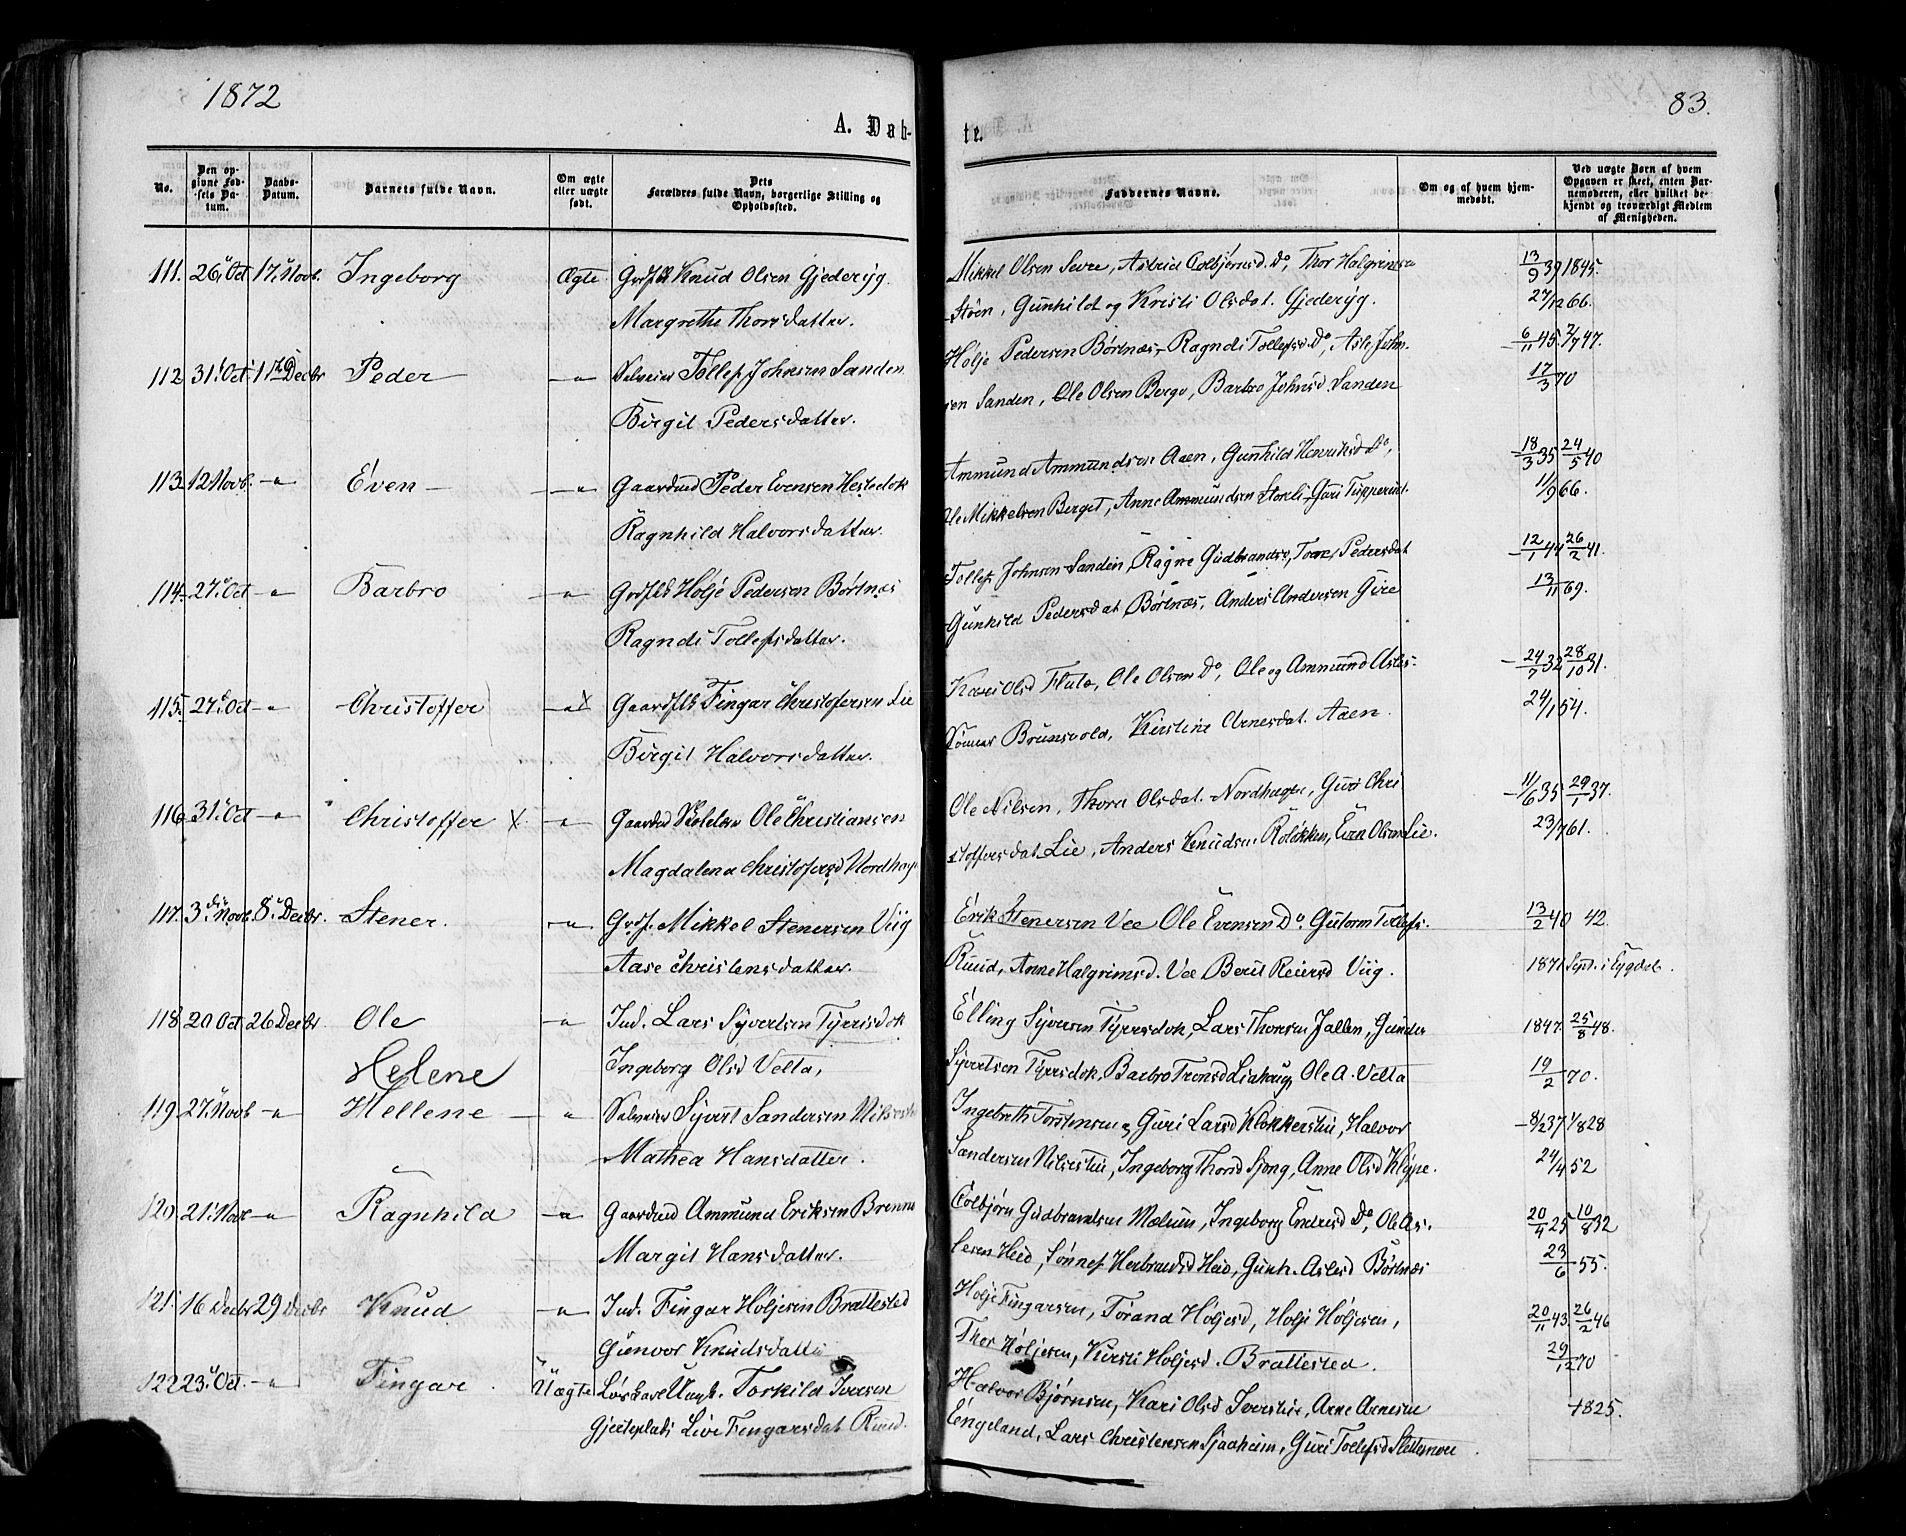 1872
83.
A. Døb-
te.
No.
Den op-
givne Fød-
sels Da-
tum.
Daabs-
Datum.
Barnets fulde Navn.
Om ægte
eller uægte
født.
Dets
Forældres fulde Navn, borgerlige Stilling og
Opholdssted.
Faddernes Navne.
Om og af hvem hjem-
medøbt.
Ved uægte Børn af hvem
Opgaven er skeet, enten Bar-
nemoderen, eller hvilket be-
kjendt og troværdigt Medlem
af Menigheden.
111. 26 Oct 17 Novb. Ingeborg Ægte Knud Olsen Gjederyg. Mikkel Olsen Sevre, Astrid Colbjørnsd. Do, Thor Halgrimsen 13/9 39 1845.
Margrethe Thorsdatter. Støen, Gunhild og Kristi Olsdat. Gjederyg. 27/12 66.
112 31 Oct 1 Decbr Peder -"- Tollef Johnsen Sanden Hølje Pedersen Børtnæs, Ragndi Tollefsd. Do, Asle John- 6/11 45. 2/7 47.
Birgit Pedersdatter. sen Sanden, Ole Olsen Berge, Barbro Johnsd. Sanden 17/3 70
113 12 Novb. -"- Even -"- Gaardmd Peder Evensen Hesledok Ammund Ammundsen Aaen, Gunhild Henriksd Do, 18/3 35 24/5 40
Ragnhild Halvorsdatter. Ole Mikkelsen Berget, Anne Ammundsen Stokli 11/9 66.
114. 27 Oct -"- Barbro -"- Hølje Pedersen Børtnæs Tollef Johnsen Sanden, Ragne Gudbrandsd, Pedersdat 12/1 44 26/2 41.
Ragndi Tollefsdatter. Gunhild Pedersdat Børtnæs, Anders Andersen Gire 13/11 69.
115. 27 Oct -"- Christoffer -"- X Fingar Christofersen Lie Kari Olsd Flate, Ole Olsen Do, Ole og Ammund Asles- 24/7 32 28/10 31.
Birgit Halvorsdatter. Sønner Brunsvold, Kirstine Arnesdat. Aaen. 24/1 54.
116 31 Oct -"- Christoffer X -"- Ole Christiansen Ole Nilsen, Thora Olsdat. Nordhagen, Guri Chri 11/6 35 29/1 37.
Magdalena Christofersd Nordhag stoffersdat Lie, Anders Knudsen Roløkken, Even Olsen Lie. 23/7 61.
117. 3 Novb. 8 Decbr. Stener. -"- Mikkel Stenersen Viig Erik Stenersen Vee Ole Evensen Do. Gutorm Tollefs. 13/2 40 42.
Aase Christensdatter. Ruud, Anne Halgrimsd. Vee Berit Reiersd Viig. 1871 Sept. i
118 20 Oct 26 Decbr Ole -"- Ind. Lars Syvertsen Tyrrisdok Elling Syversen Tyrrisdok, Lars Thorsen Jallen, Gunder 1847. 25/8 48.
Helene Ingeborg Olsd Velta, Syvertsen Tyrrisdok, Barbro Tronsd Liahaug, Ole A. Velta 19/2 70.
119 27 Novb -"- Hellene -"- Syvert Sandersen Ingebreth Torstensen, Guri Larsd Klokkerstui, Halvor 8/2 37 1/8 28
Mathea Hansdatter. Sandersen Nilsestui, Ingeborg Thorsd Sjong, Anne Olsd Kløpe. 24/4 52
120 21 Nov -"- Ragnhild -"- Gaardmd Ammund Eriksen Brenno Colbjørn Gudbrandsen Mælum, Ingeborg Endresd Do, Ole As- 20/4 25 10/8 32
Margit Hansdatter. lesen Heie, Sønnef Herbrandsd Heie, Gunh. Aslesd Børtnæs 23/6 55.
121. 16 Decbr 29 Decbr Knud -"- Ind. Fingar Høljesen Brattested Holje Fingarsen, Torand Høljesd, Holje Høljesen, 20/11 43. 26/2 46
Gunvor Knudsdatter Thor Høljesen, Kirsti Høljesd. Brattested. 29/12 70
122 23 Oct. -"- Fingar Uægte Løskarl Ungk. Torkild Iversen Halvor Bjørnsen, Kari Olsd Iverstuie, Arne Arnesen 1825.
Gjeteplads Live Fingarsdat Ruud. Engeland, Lars Christensen Sjaaheim, Guri Tollefsd Slettemoen